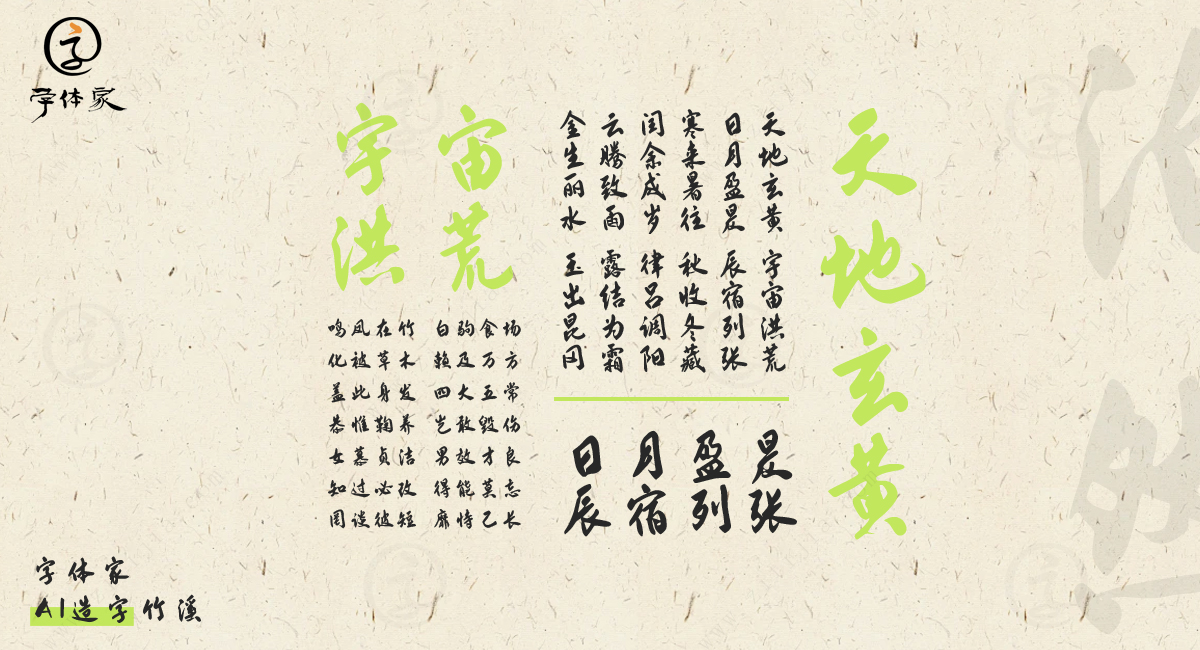 字体家
天地玄黄
天地玄黄 宇宙洪荒
日月盈昃 辰宿列张
寒来暑往 秋收冬藏
闰余成岁 律吕调阳
云腾致雨 露结为霜
金生丽水 玉出昆冈
日月盈昃
辰宿列张
宇宙
洪荒
鸣凤在竹 白驹食场
化被草木 赖及万方
盖此身发 四大五常
恭惟鞠养 岂敢毁伤
女慕贞洁 男效才良
知过必改 得能莫忘
罔谈彼短 靡恃己长
字体家
AI造字竹溪